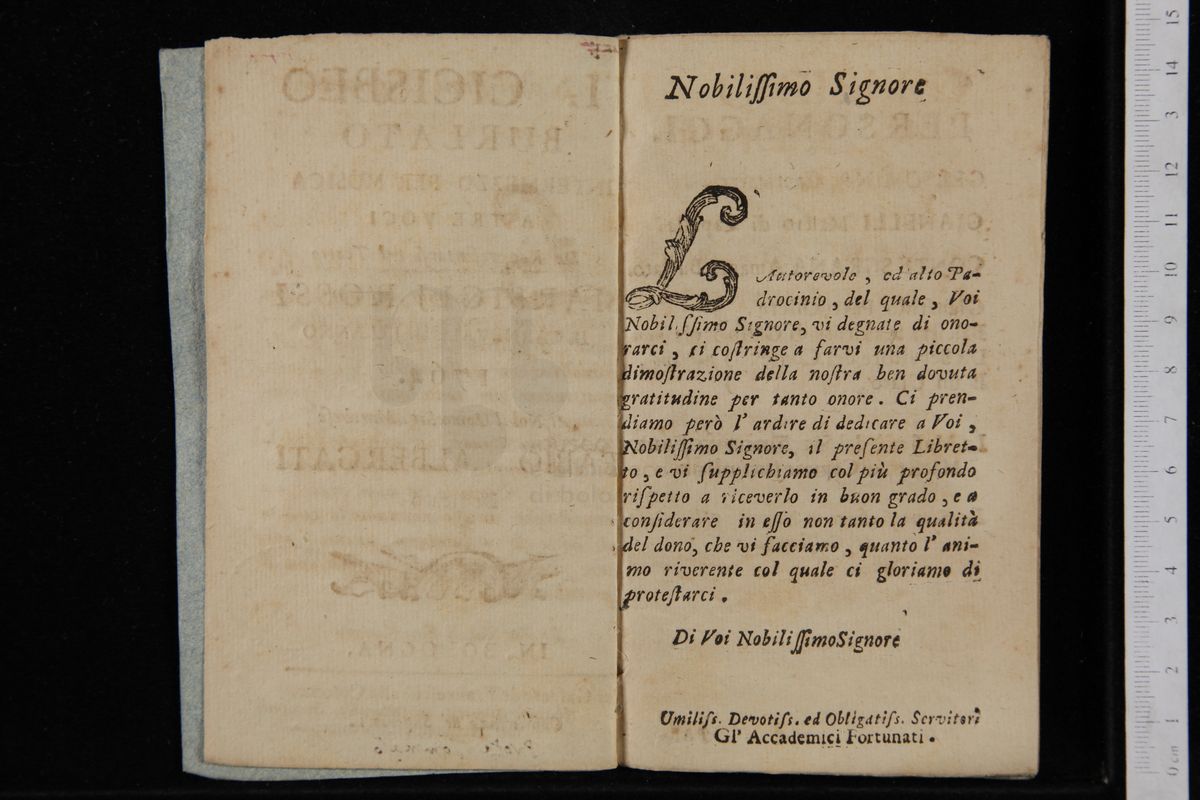 Nobiliſſimo Signore
L'Autorevole, ed alto Pa-
drocinio, del quale, Voi
Nobiliſſimo Signore, vi degnate di ono-
rarci, ci coſtringe a farvi una piccola
dimoſtrazione della noſtra ben dovuta
gratitudine per tanto onore. Ci pren-
diamo però l'ardire di dedicare a Voi,
Nobiliſſimo Signore, il preſente Libret-
to, e vi ſupplichiamo col più profondo
riſpetto a riceverlo in buon grado, e a
conſiderare in eſſo non tanto la qualità
del dono, che vi facciamo, quanto l'ani-
mo riverente col quale ci gloriamo di
proteſtarci.
Di Voi Nobiliſſimo Signore
Umiliſs. Devotiſs. ed Obligatiſs. Servitori
Gl' Accademici Fortunati.